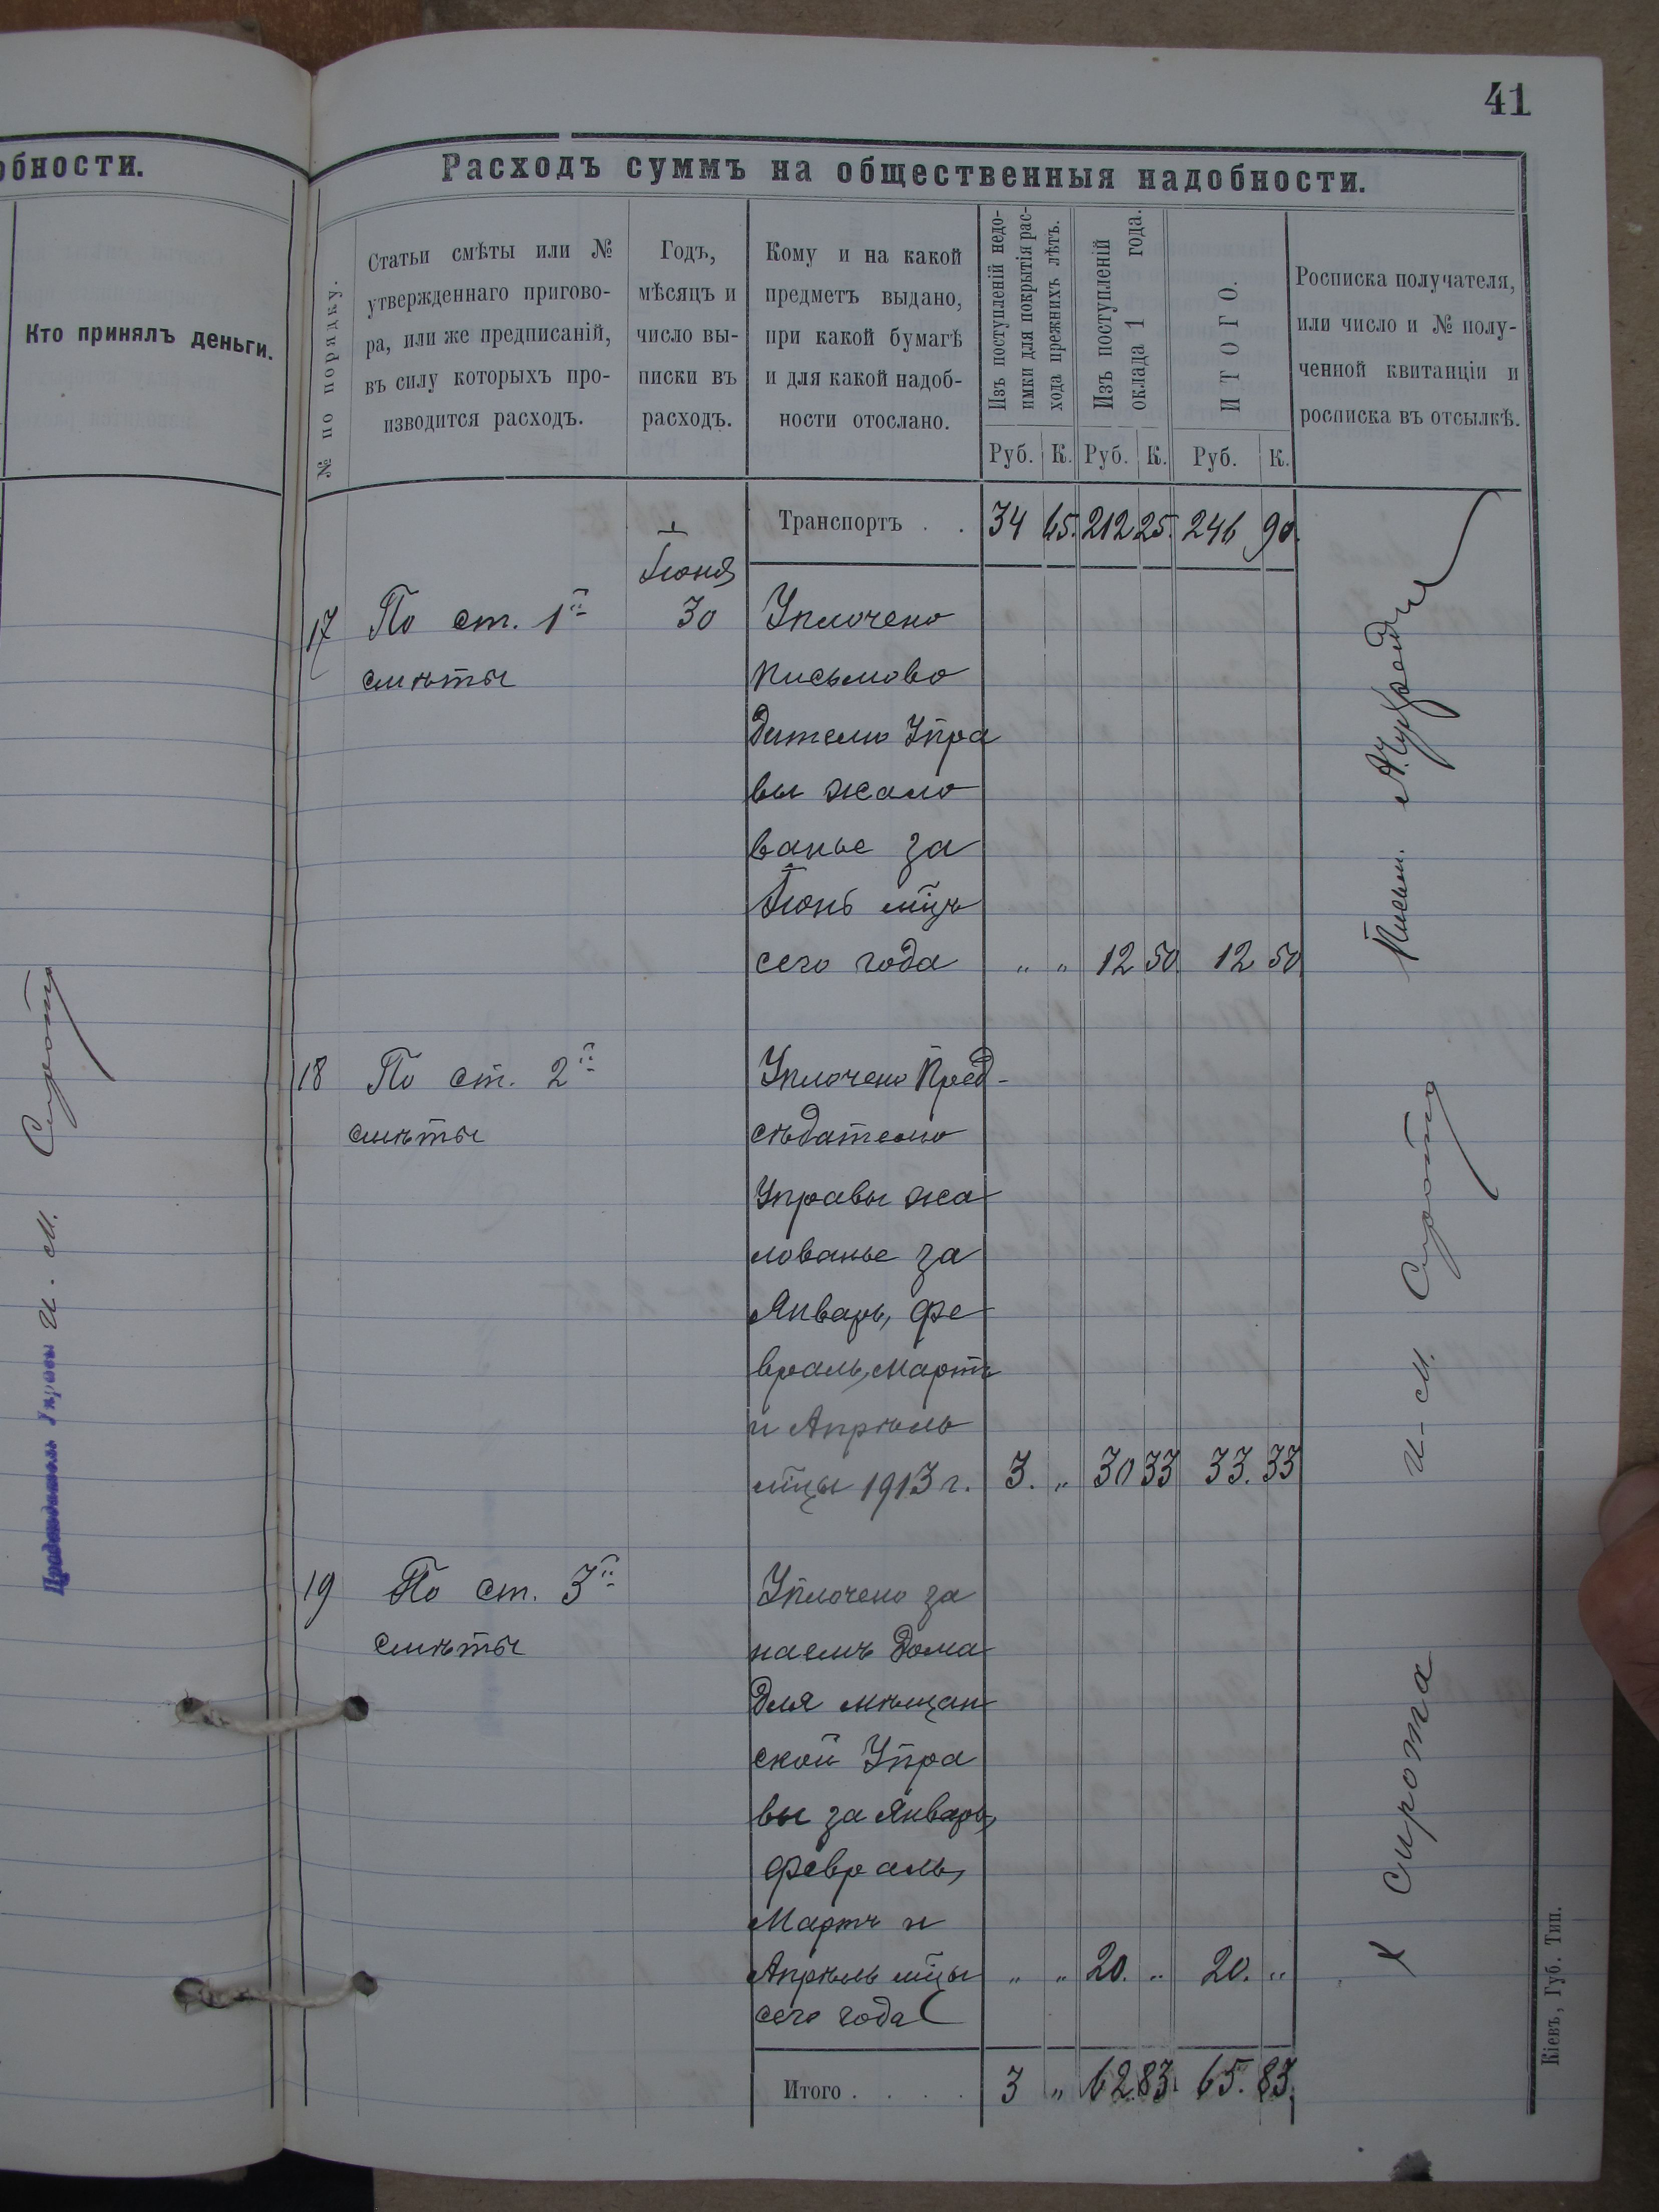 обности.
Кто принялъ деньги.
Предсѣдатель Управы И. М. Сирота
41
Расходъ суммъ на общественныя надобности.
№ по порядку.
Статьи смѣты или №
утвержденнаго пригово-
ра, или же предписаній,
въ силу которыхъ про-
изводится расходъ.
Годъ,
мѣсяцъ и
число вы-
писки въ
расходъ.
Кому и на какой
предметъ выдано,
при какой бумагѣ
и для какой надоб-
ности отослано.
Изъ поступленій недо-
имки для покрытія рас-
хода прежнихъ лѣтъ.
Изъ поступленій
оклада 1 года.
ИТОГО.
Росписка получателя,
или число и № полу-
ченной квитанціи и
росписка въ отсылкѣ.
Руб. К. Руб. К. Руб. К.
Транспортъ . . 34 65. 212 25. 246 90.
Іюня
17 По ст. 1й 30 Уплочено
смѣты письмово
дителю Упра
вы жало
ванье за
Іюнь мцъ
сего года „ „ 12 50. 12 50
Письм.
18 По ст. 2й Уплочено Пред-
смѣты сѣдателю
Управы жа
лованье за
Январь, Фе
враль, Мартъ
и Апрѣль
мцы 1913 г. 3. „ 30 33 33. 33
И. М. Сирота
19 По ст. 3й Уплочено за
смѣты наемъ дома
для мѣщан
ской Упра
вы за Январь,
Февраль,
Мартъ и
Апрѣль мцы „ „ 20. „ 20. „
сего года
х Сирота
Итого . . . . 3 „ 62 83. 65. 83.
Кіевъ, Губ. Тип.